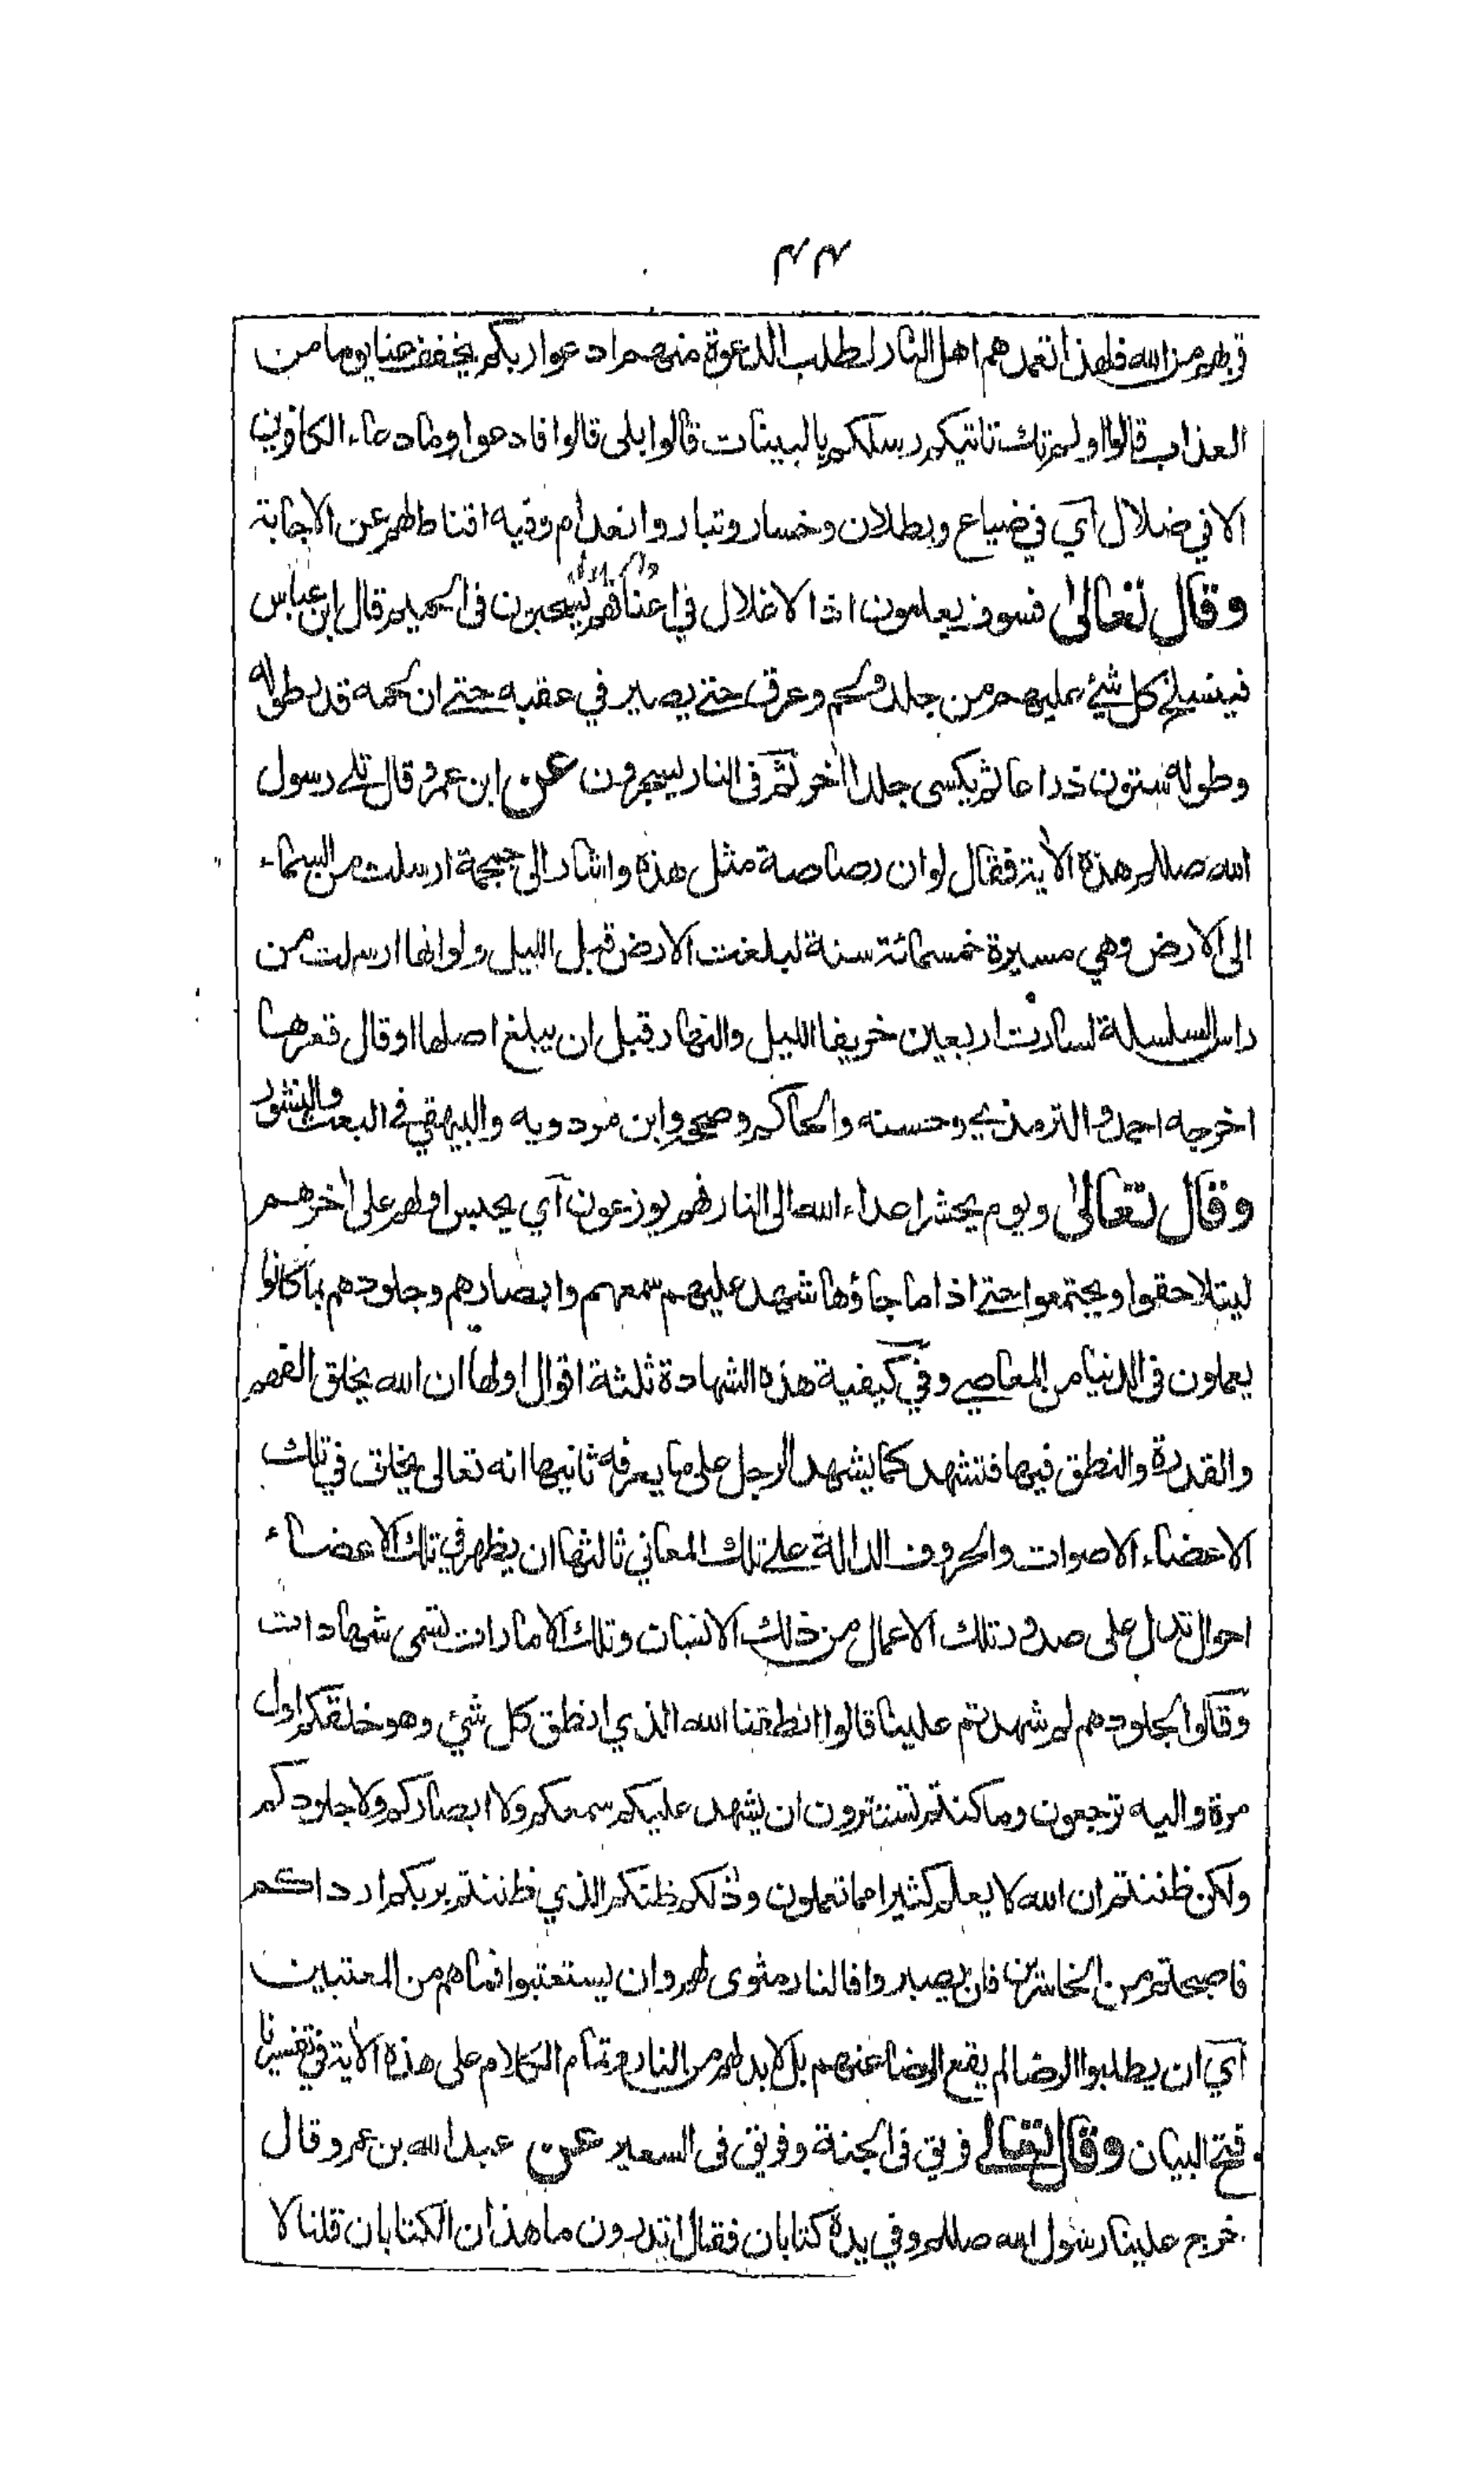 ۴۴
قربهم من الله فلهذا تعمدهم اهل النار لطلب الدعوة منهم ادعوا ربكم يخفف عنا يوما من
العذاب قالوا اولم تك تاتيكم رسلكم بالبينات قالوا بلى قالوا فادعوا وما دعاء الكافرين
الا في ضلال أي في ضياع وبطلان وخسار وتبار وانعدام وفيه اقناط لهم عن الاجابة
وقال تعالى فسوف يعلمون اذ الاغلال في اعناقهم والسلاسل يسحبون فى الحميم قال ابن عباس
فينسلخ كل شئ عليهم من جلد ولحم وعرق حتى يصير في عقبه حتى ان لحمه قدر طوله
وطوله ستون ذراعا ثم يكسى جلدا اٰخر ثم فى النار يسجرون عن ابن عمرو قال تلى رسول
الله صللم هذه الاٰية فقال لو ان رصاصة مثل هذه واشار الى جمجمة ارسلت من السماء
الى الارض وهي مسيرة خمسمائة سنة لبلغت الارض قبل الليل ولو انها ارسلت من
راس السلسلة لسارت اربعين خريفا الليل والنهار قبل ان يبلغ اصلها او قال قعرها
اخرجه احمد والترمذي وحسنه والحاكم وصححه وابن مردويه والبيهقي فى البعث والنشور
وقال تعالى ويوم يحشر اعداء الله الى النار فهم يوزعون أي يحبس اولهم على اٰخرهم
ليتلاحقوا ويجتمعوا حتى اذا ما جاؤها شهد عليهم سمعهم وابصارهم وجلودهم بما كانوا
يعملون فى الدنيا من المعاصي وفي كيفية هذه الشهادة ثلثة اقوال اولها ان الله يخلق الفهم
والقدرة والنطق فيها فتشهد كما يشهد الرجل على ما يعرفه ثانيها انه تعالى يخلق في تلك
الاعضاء الاصوات والحروف الدالة على تلك المعاني ثالثها ان يظهر في تلك الاعضاء
احوال تدل على صدور تلك الاعمال من ذلك الانسان وتلك الامارات تسمى شهادات
وقالوا لجلودهم لم شهدتم علينا قالوا انطقنا الله الذي انطق كل شئ وهو خلقكم اول
مرة واليه ترجعون وما كنتم تستترون ان يشهد عليكم سمعكم ولا ابصاركم ولا جلودكم
ولكن ظننتم ان الله لا يعلم كثيرا مما تعملون وذلكم ظنكم الذي ظننتم بربكم ارداكم
فاصبحتم من الخاسرين فان يصبروا فالنار مثوى لهم وان يستعتبوا فما هم من المعتبين
أي ان يطلبوا الرضا لم يقع الرضا عنهم بل لا بد لهم من النار وتمام الكلام على هذه الاٰية في تفسيرنا
فتح البيان وقال تعالى فريق فى الجنة وفريق فى السعير عن عبد الله بن عمرو قال
خرج علينا رسول الله صللم وفي يده كتابان فقال اتدرون ما هذان الكتابان قلنا لا